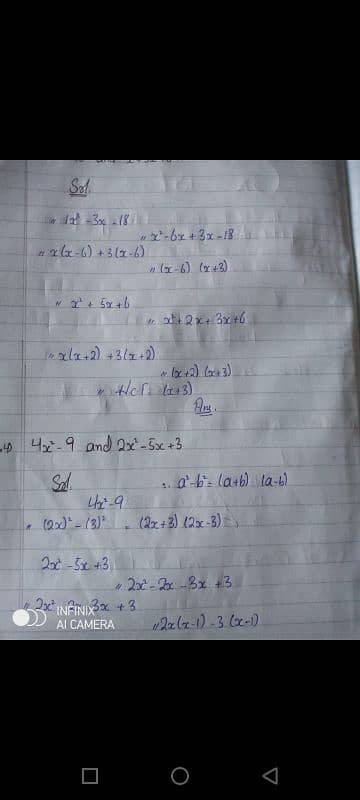 Sol.
" x² - 3x - 18
" x² - 6x + 3x - 18
" x(x-6) + 3(x-6)
" (x-6) (x+3)
" x² + 5x + 6
" x² + 2x + 3x + 6
" x(x+2) + 3(x+2)
" (x+2) (x+3)
" H.C.F. (x+3)
Ans.
4x² - 9 and 2x² - 5x + 3
Sol.
∵ a² - b² = (a+b) (a-b)
4x² - 9
= (2x)² - (3)² = (2x+3) (2x-3)
2x² - 5x + 3
" 2x² - 2x - 3x + 3
" 2x² 3x + 3
" 2x(x-1) - 3(x-1)
INFINIX
AI CAMERA